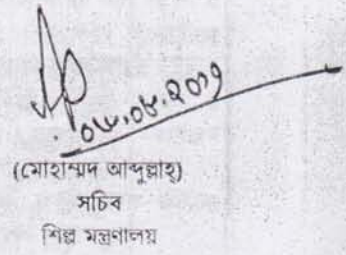 ০৬.০৮.২০১৭
(মোহাম্মদ আব্দুল্লাহ্)
সচিব
শিল্প মন্ত্রণালয়